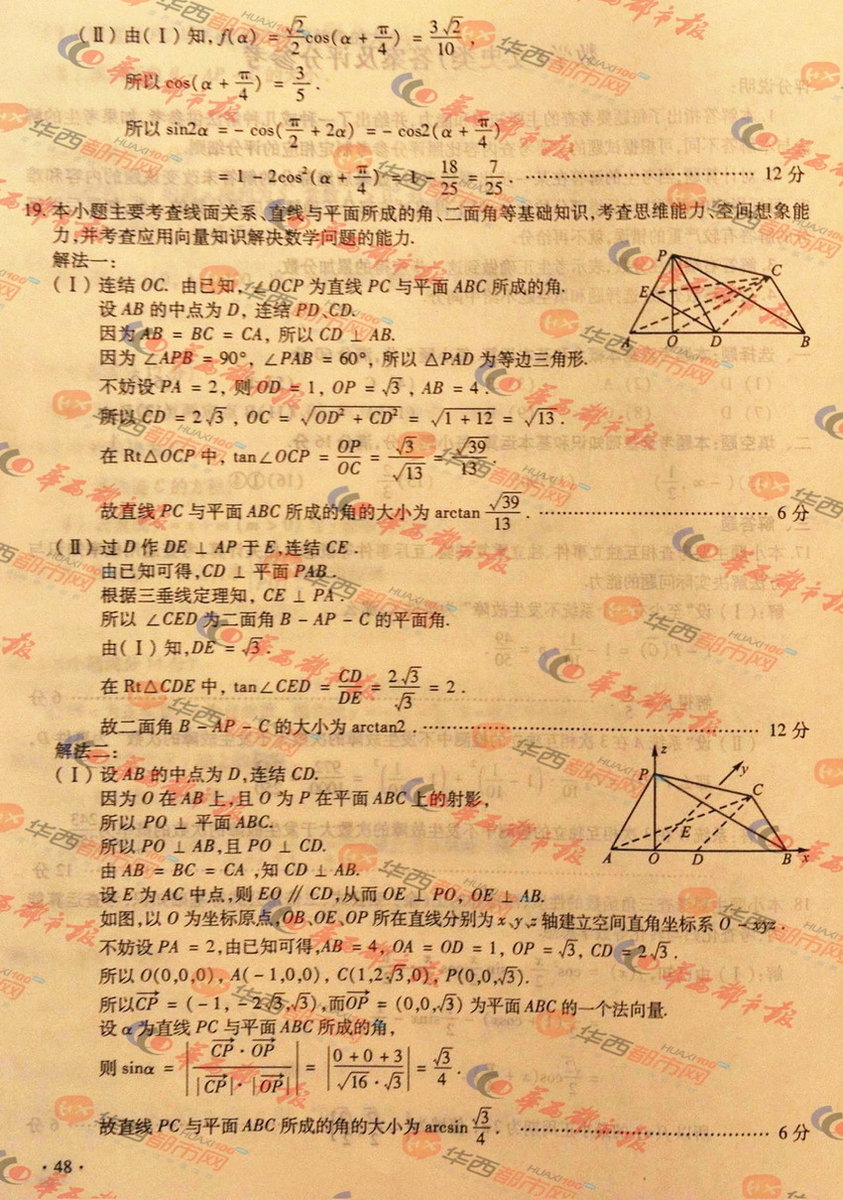 (Ⅱ)由(Ⅰ)知, f(α) = √2/2 cos(α + π/4) = 3√2/10,
所以 cos(α + π/4) = 3/5.
所以 sin2α = - cos(π/2 + 2α) = - cos2(α + π/4)
= 1 - 2cos²(α + π/4) = 1 - 18/25 = 7/25. …… 12分
19. 本小题主要考查线面关系、直线与平面所成的角、二面角等基础知识,考查思维能力、空间想象能
力,并考查应用向量知识解决数学问题的能力.
解法一:
(Ⅰ)连结OC. 由已知, ∠OCP为直线PC与平面ABC所成的角.
设AB的中点为D, 连结PD、CD.
因为AB = BC = CA, 所以CD ⊥ AB.
因为∠APB = 90°, ∠PAB = 60°, 所以△PAD为等边三角形.
不妨设PA = 2, 则OD = 1, OP = √3, AB = 4.
所以CD = 2√3, OC = √(OD² + CD²) = √(1 + 12) = √13.
在Rt△OCP中, tan∠OCP = OP/OC = √3/√13 = √39/13.
故直线PC与平面ABC所成的角的大小为arctan √39/13. …… 6分
(Ⅱ)过D作DE ⊥ AP于E,连结CE.
由已知可得,CD ⊥ 平面PAB.
根据三垂线定理知, CE ⊥ PA.
所以∠CED为二面角B - AP - C的平面角.
由(Ⅰ)知,DE = √3.
在Rt△CDE中, tan∠CED = CD/DE = 2√3/√3 = 2.
故二面角B - AP - C的大小为arctan2. …… 12分
解法二:
(Ⅰ)设AB的中点为D,连结CD.
因为O在AB上,且O为P在平面ABC上的射影,
所以PO ⊥ 平面ABC.
所以PO ⊥ AB,且PO ⊥ CD.
由AB = BC = CA,知CD ⊥ AB.
设E为AC中点,则EO∥CD,从而OE ⊥ PO, OE ⊥ AB.
如图,以O为坐标原点,OB、OE、OP所在直线分别为x、y、z轴建立空间直角坐标系O - xyz.
不妨设PA = 2,由已知可得,AB = 4, OA = OD = 1, OP = √3, CD = 2√3.
所以O(0,0,0), A(-1,0,0), C(1,2√3,0), P(0,0,√3).
所以CP→ = (-1, -2√3,√3),而OP→ = (0,0,√3)为平面ABC的一个法向量.
设α为直线PC与平面ABC所成的角,
则sinα = |CP→·OP→ / |CP→|·|OP→|| = |(0 + 0 + 3)/(√16·√3)| = √3/4.
故直线PC与平面ABC所成的角的大小为arcsin √3/4. …… 6分
·48·
P
C
E
A
O
D
B
z
y
P
C
E
A
O
D
B
x
华西都市报
华西都市网
HUAXI100.com